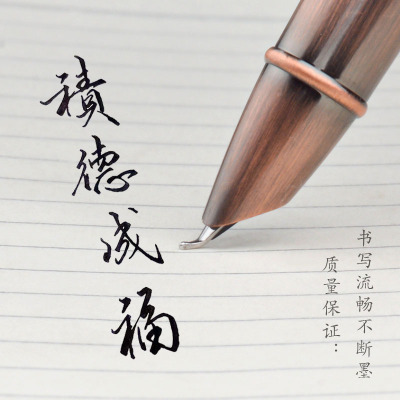 積德成福
质量保证：
书写流畅不断墨